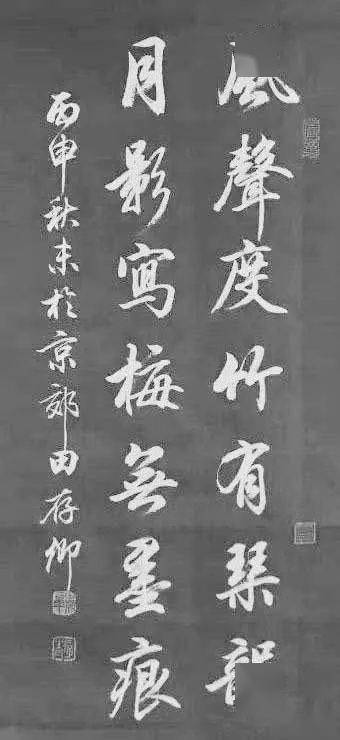 風聲度竹有琴韵
月影寫梅無墨痕
丙申秋末於京郊田存卿